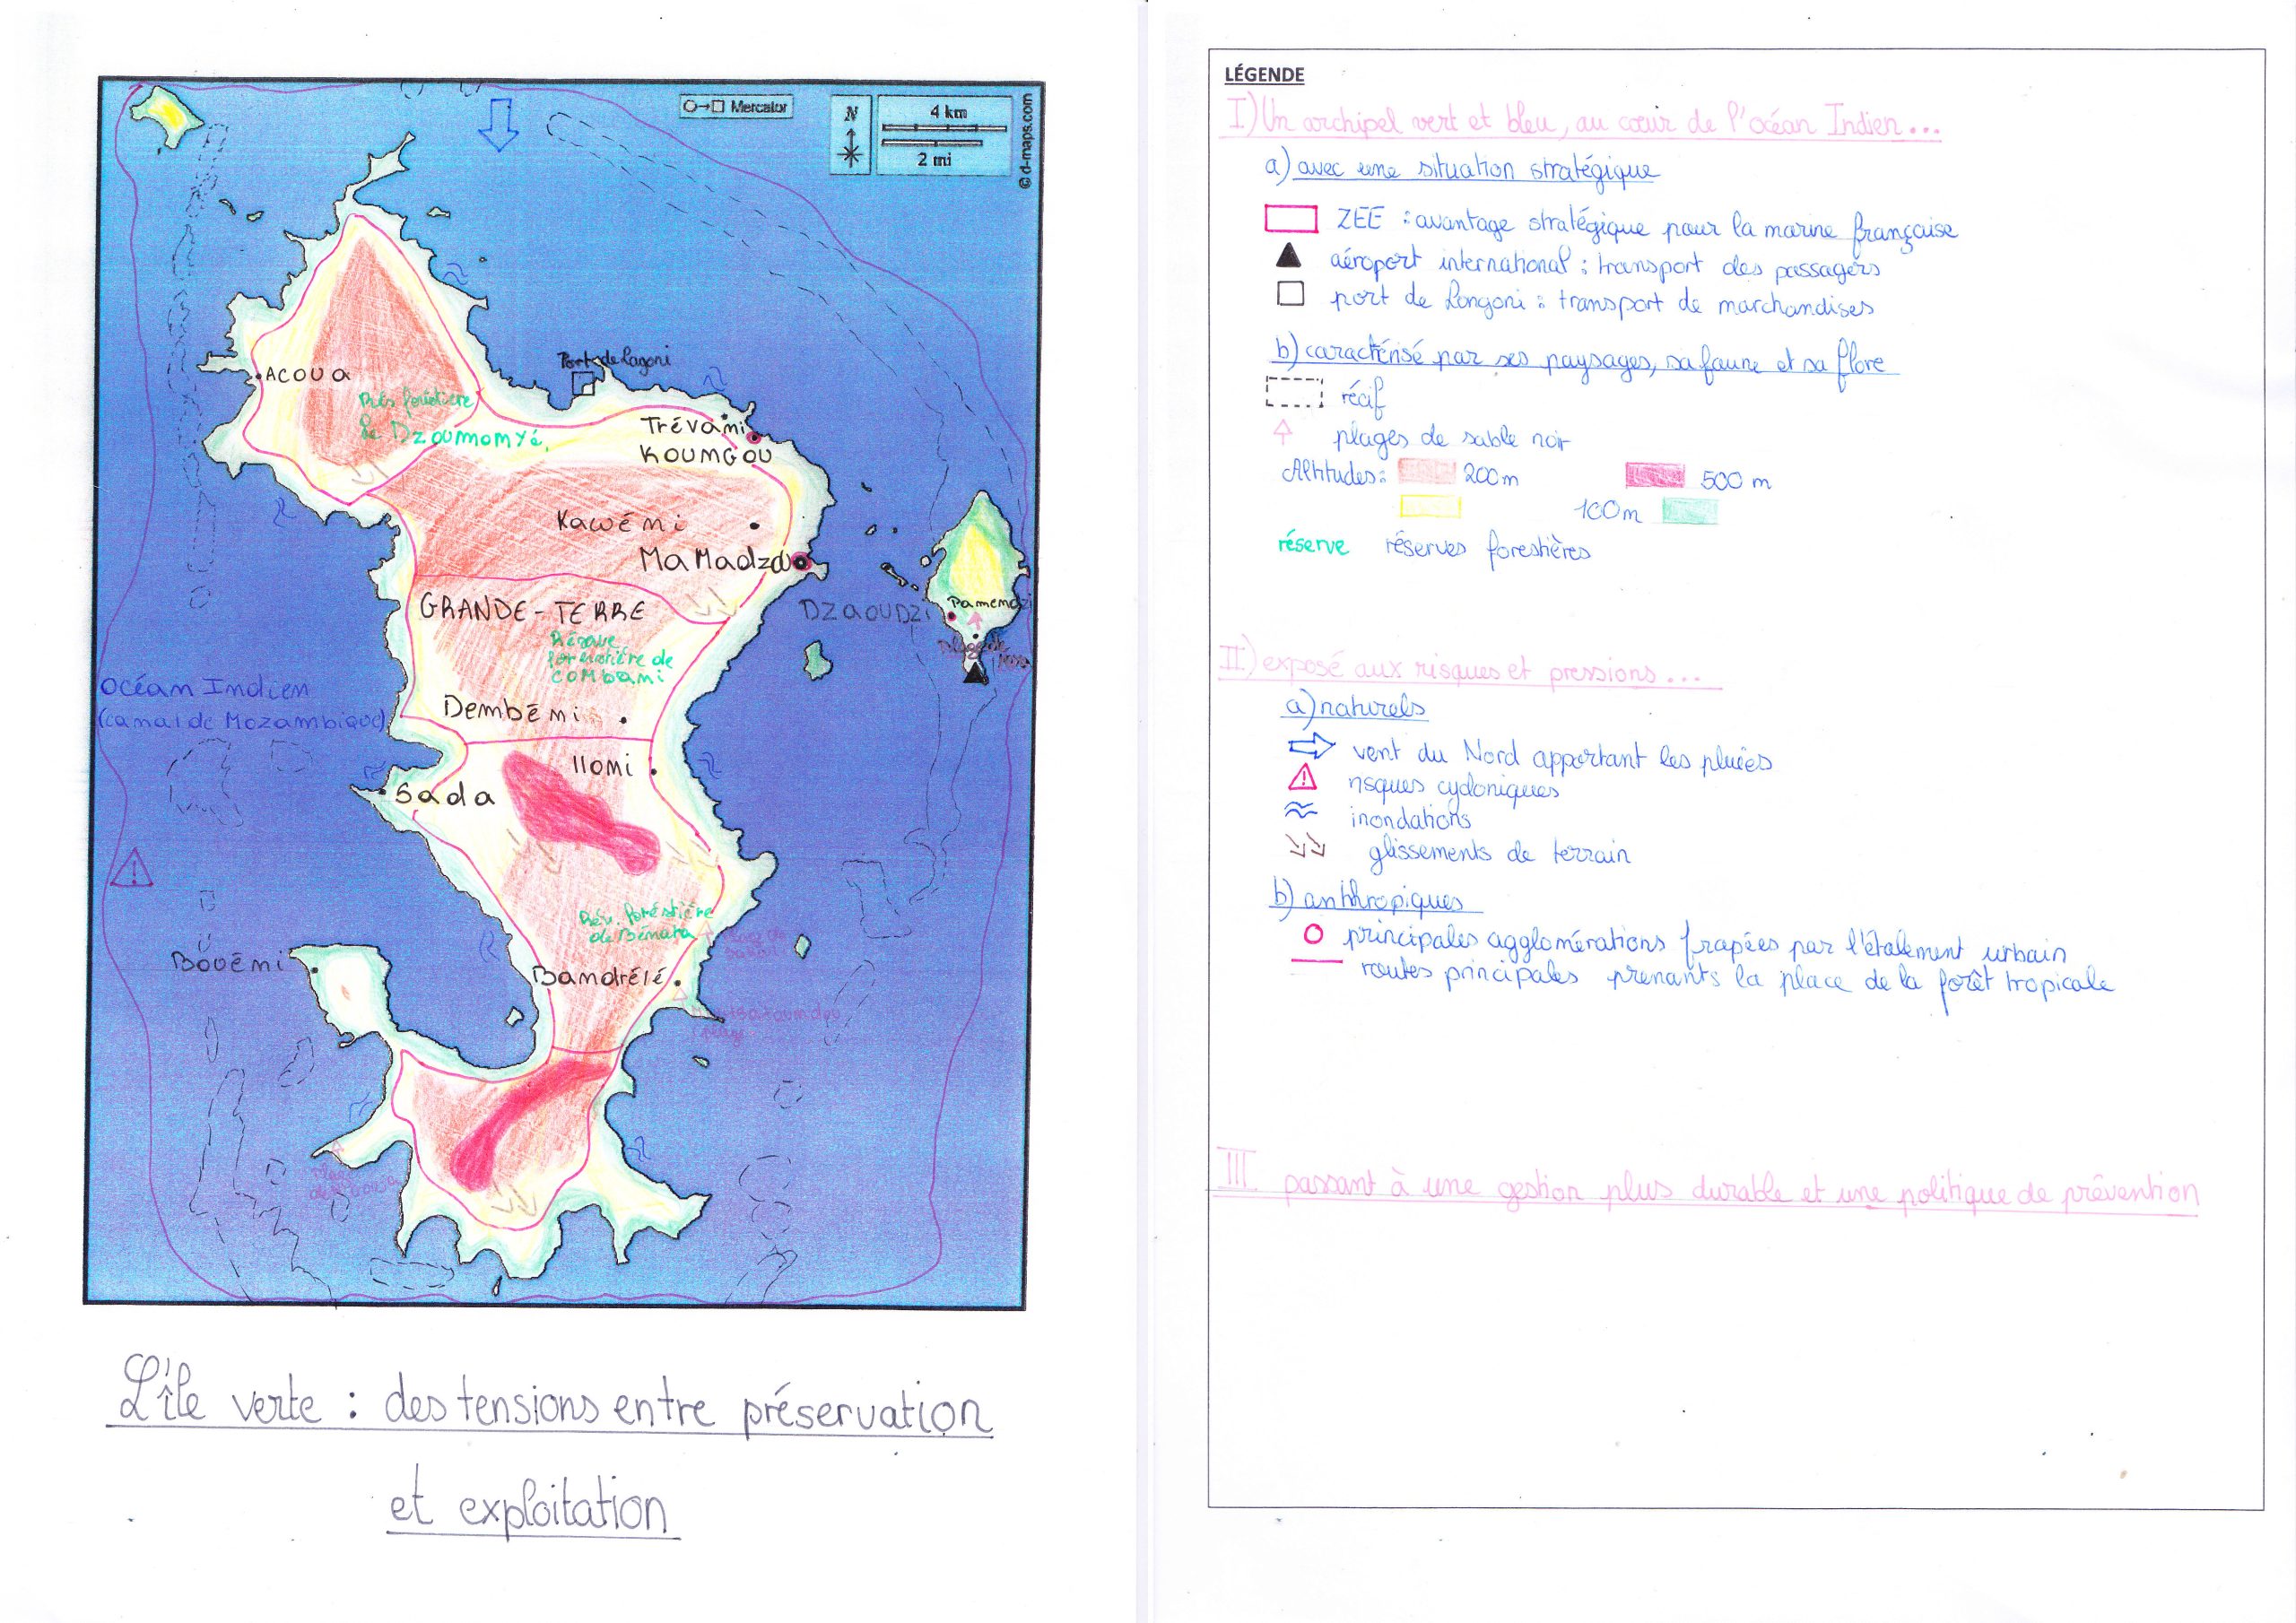 Mercator
N
4 km
2 mi
© d-maps.com
Port de Lagoni
ACOUA
Rés forêstière
de Dzoumomyé,
Trévami
KOUMGOU
Kawémi
MaMadzou
GRANDE-TERRE
DZAOUDZI
Pamemdzi
Réserve
forestière de
combami
Océan Indien
(canal de Mozambique)
Dembémi
Ilomi
Sada
Rés. foréstière
de Bénara
Bouémi
Bamdrélé
L'île verte : des tensions entre préservation
et exploitation
LÉGENDE
I) Un archipel vert et bleu, au cœur de l'océan Indien...
a) avec une situation stratégique
ZEE : avantage stratégique pour la marine française
aéroport international : transport des passagers
port de Longoni : transport de marchandises
b) caractérisé par ses paysages, sa faune et sa flore
récif
plages de sable noir
Altitudes: 200m 500 m
100m
réserve réserves forestières
II) exposé aux risques et pressions...
a) naturels
vent du Nord apportant les pluies
risques cycloniques
inondations
glissements de terrain
b) anthropiques
principales agglomérations frapées par l'étalement urbain
routes principales prenants la place de la forêt tropicale
III passant à une gestion plus durable et une politique de prévention